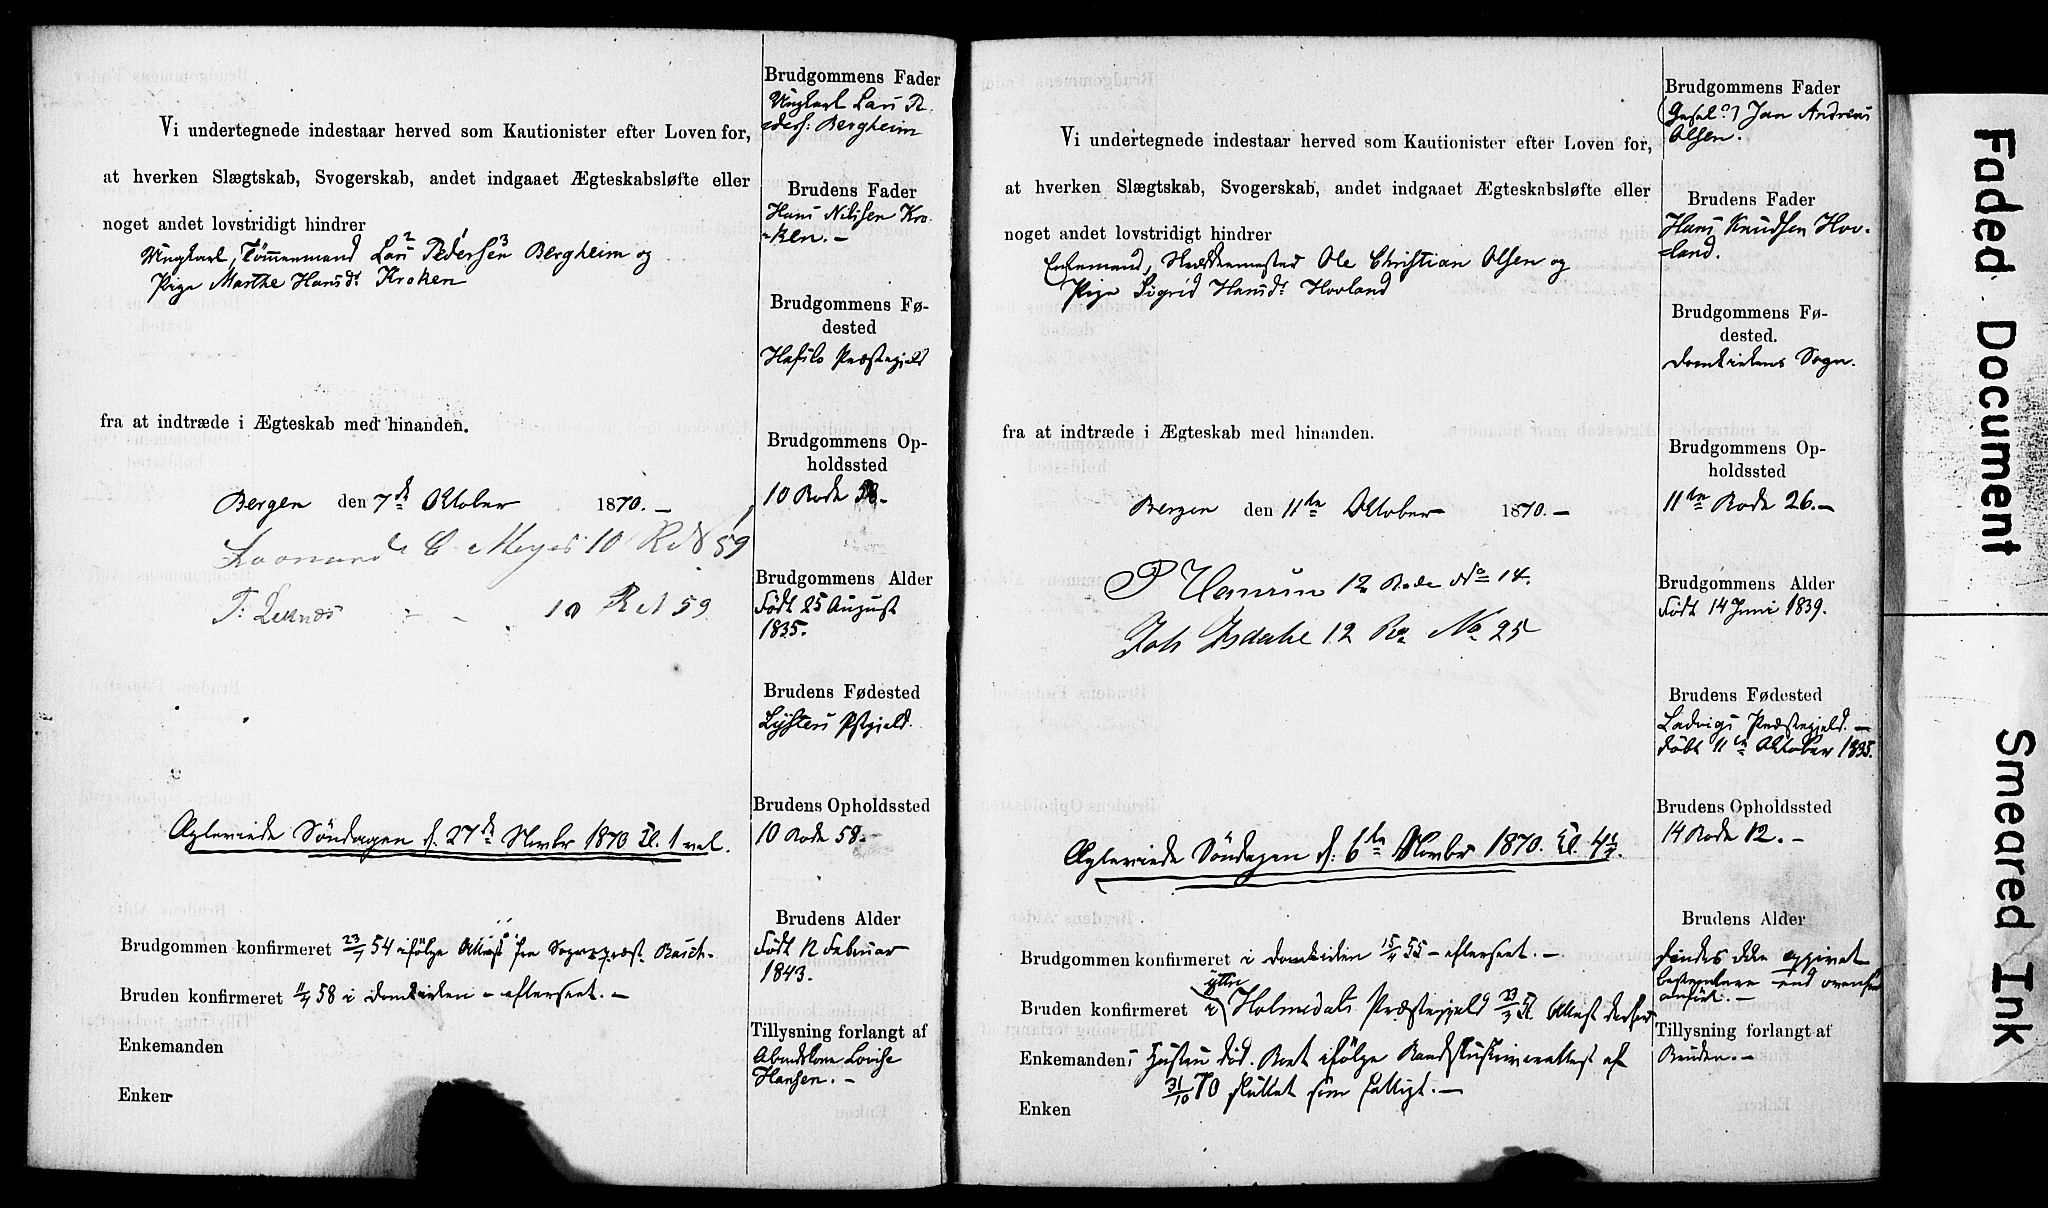 Vi undertegnede indestaar herved som Kautionister efter Loven for,
at hverken Slægtskab, Svogerskab, andet indgaaet Ægteskabsløfte eller
noget andet lovstridigt hindrer
Ungkarl, Tømmermand Lars Pedersen Bergheim og
Pige Marthe Hansdt Kroken
fra at indtræde i Ægteskab med hinanden.
Bergen den 7de Oktober 1870.-
C. Meyer 10 Rd 59
10 Rd 59
Ægteviede Søndagen d. 27de Novbr 1870 Kl. 1
Brudgommen konfirmeret 23/4 54 ifølge Attest fra Sognepræst Rasch.-
Bruden konfirmeret 58 i Domkirken - efterseet.-
Enkemanden
Enken
Brudgommens Fader
Ungkarl Lars Pe-
ders: Bergheim
Brudens Fader
Hans Nilssen Kro-
-ken.-
Brudgommens Fø-
dested
Hafslo Præstegjeld
Brudgommens Op-
holdssted
10 Rode 58.-
Brudgommens Alder
Født 25 August
1835.
Brudens Fødested
Lysters Pstgjeld.
Brudens Opholdssted
10 Rode 58.
Brudens Alder
Født 12 Februar
1843.
Tillysning forlangt af
Lovise
Hansen.-
Vi undertegnede indestaar herved som Kautionister efter Loven for,
at hverken Slægtskab, Svogerskab, andet indgaaet Ægteskabsløfte eller
noget andet lovstridigt hindrer
Enkemand, Ole Christian Olsen og
Pige Sigrid Hansdt Hovland
fra at indtræde i Ægteskab med hinanden.
Bergen den 11te Oktober 1870.-
P Hansen 12 Rode No 14.
Joh Isdahl 12 Ro No 25
Ægteviede Søndagen d. 6te Novbr 1870. Kl. 4½.
Brudgommen konfirmeret i Domkirken 15/4 55 - efterseet.-
Bruden konfirmeret i ytre Holmedals Præstegjeld Attest
Enkemanden; Hustru død. Boet ifølge Raadstuskriverattest af
31/10 70 sluttet som fattigt.-
Enken
Brudgommens Fader
Jan Andreas
Olsen.
Brudens Fader
Hans Knudsen Hov-
-land.
Brudgommens Fø-
dested.
Domkirkens Sogn.
Brudgommens Op-
holdssted
11te Rode 26.-
Brudgommens Alder
Født 14 Juni 1839.
Brudens Fødested
Ladvigs Præstegjeld.-
Døbt 11te Oktober 1835.
Brudens Opholdssted
14 Rode 12.-
Brudens Alder
Findes ikke opgivet
bestemtere end ovenfor
anført.-
Tillysning forlangt af
Bruden.-
Faded Document
Smeared Ink